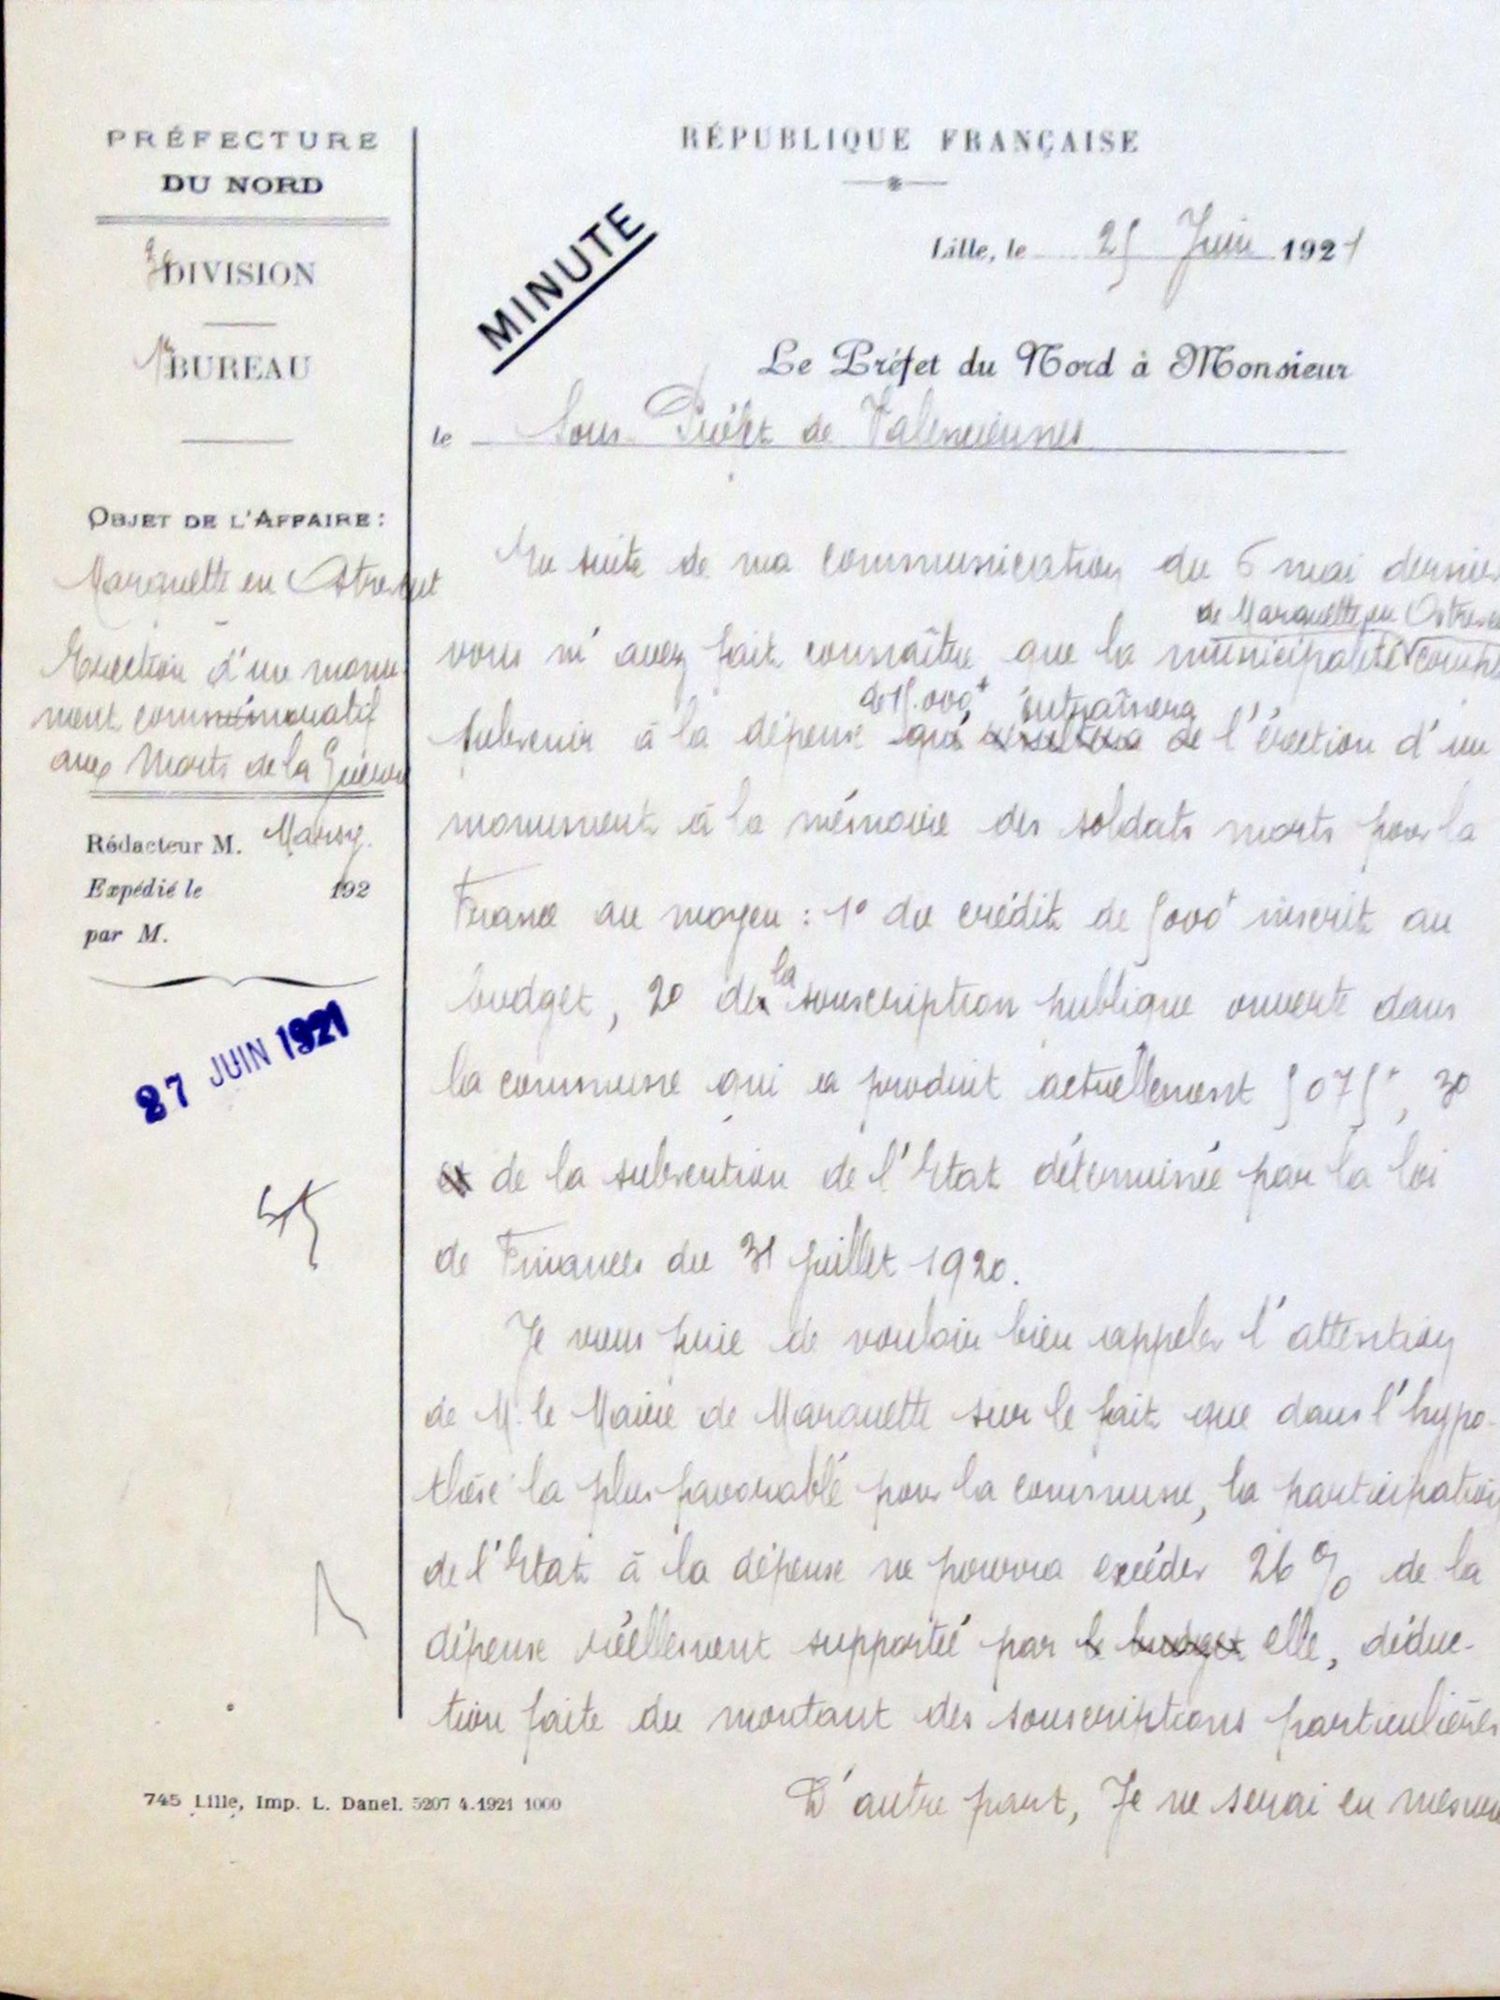 PRÉFECTURE
DU NORD
2e DIVISION
1er BUREAU
OBJET DE L'AFFAIRE :
Marquette en Ostrevant
Erection d'un monu-
ment commémoratif
aux Morts de la Guerre
Rédacteur M.
Expédié le 192
par M.
27 JUIN 1921
RÉPUBLIQUE FRANÇAISE
MINUTE
Lille, le 25 Juin 1921
Le Préfet du Nord à Monsieur
le Sous-Préfet de Valenciennes
En suite de ma communication du 6 mai dernier
de Marquette en Ostrevant
vous m'avez fait connaître que la municipalité
de 15.000f entraînera
subvenir à la dépense qu' résultera de l'érection d'un
monument à la mémoire des soldats morts pour la
France au moyen : 1° du crédit de 5000f inscrit au
budget, 2° de la souscription publique ouverte dans
la commune qui a produit actuellement 5075f, 3°
et de la subvention de l'Etat déterminée par la loi
de Finances du 31 juillet 1920.
Je vous prie de vouloir bien rappeler l'attention
de M. le Maire de Marquette sur le fait que dans l'hypo-
thèse la plus favorable pour la commune, la participation
de l'Etat à la dépense ne pourra excéder 26 % de la
dépense réellement supportée par le budget elle, déduc-
tion faite du montant des souscriptions particulières
D'autre part, Je ne serai en mesure
745 Lille, Imp. L. Danel. 5207 4.1921 1000